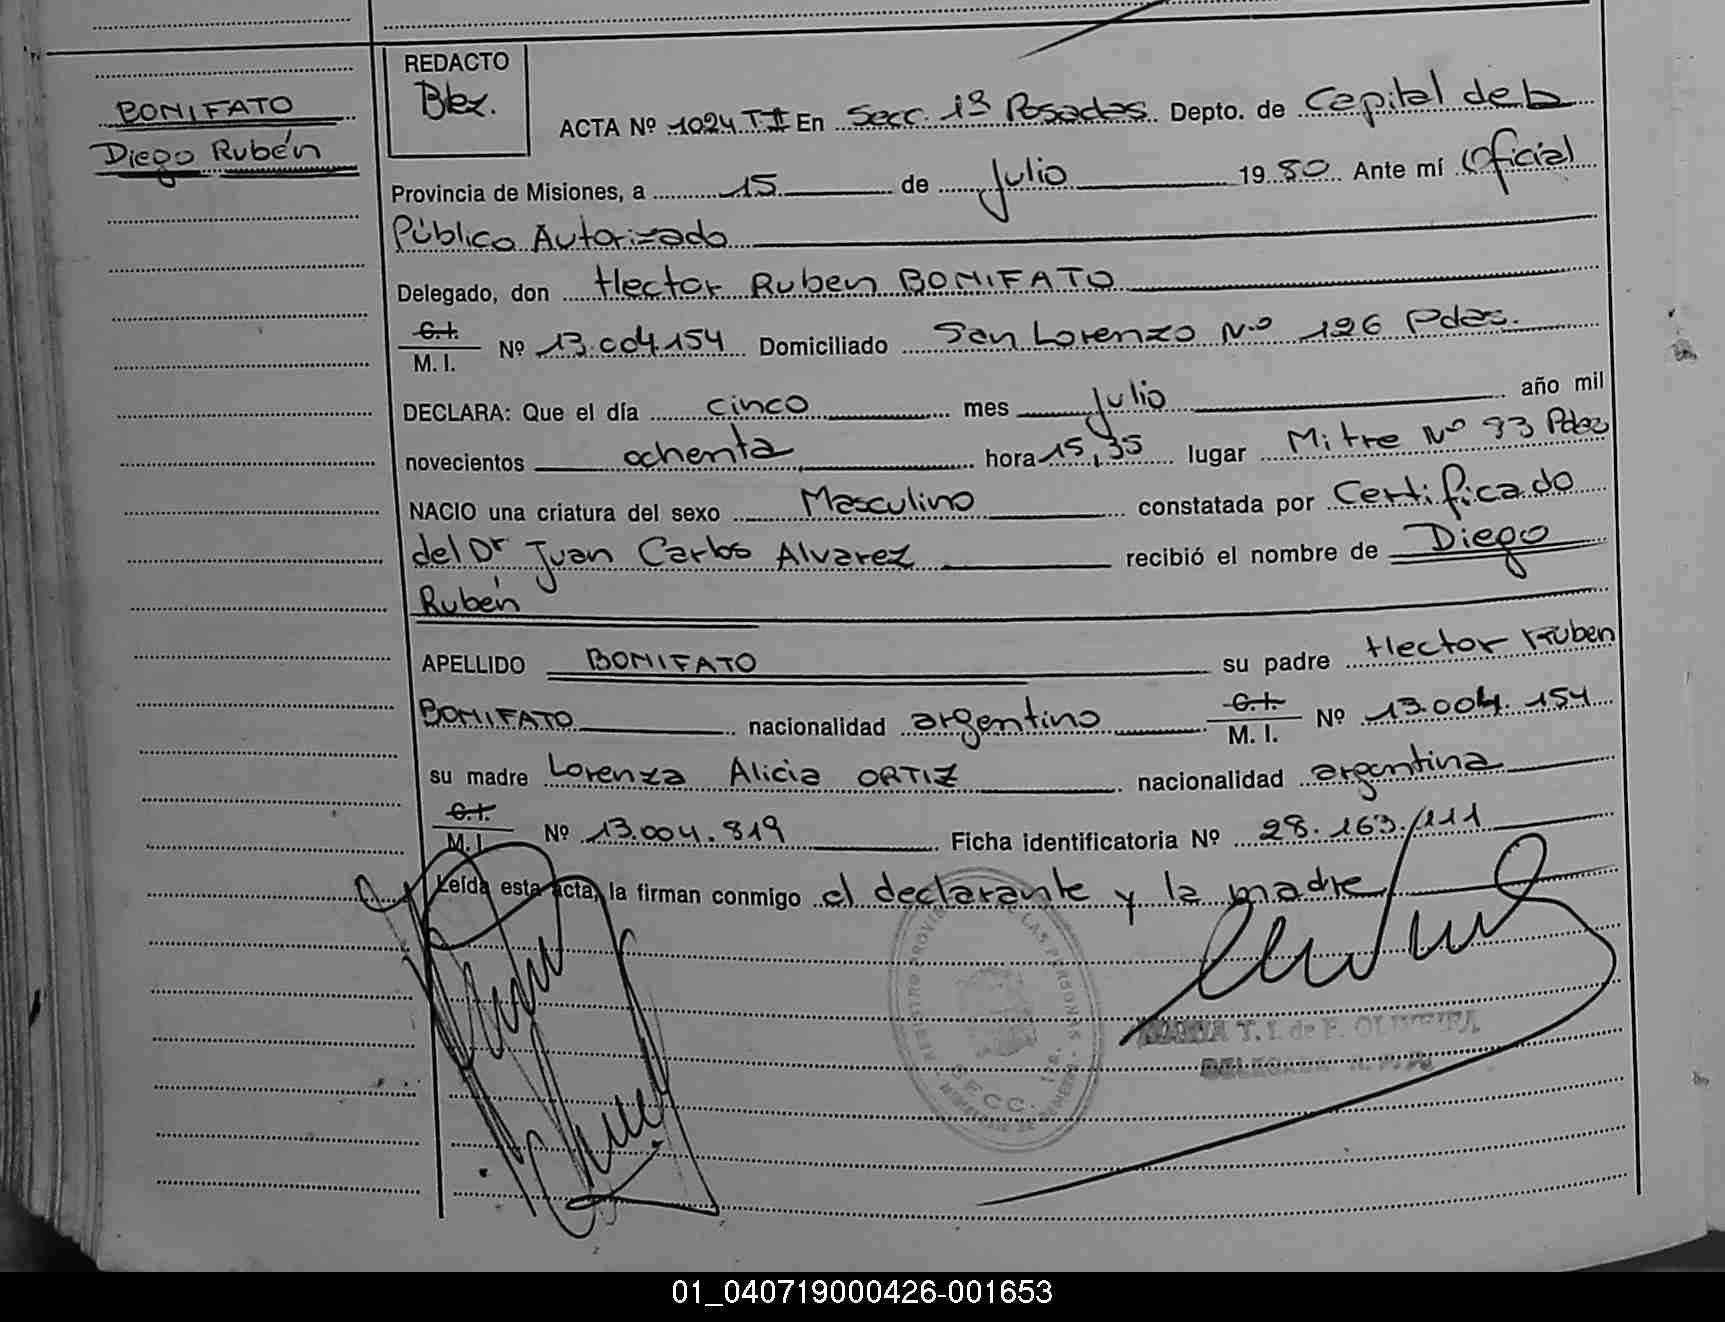 BONIFATO
Diego Rubén
REDACTO
Blez.
ACTA Nº 1024 TII En Secc. 1ª Posadas Depto. de Capital de la
Provincia de Misiones, a 15 de Julio 1980 Ante mí Oficial
Público Autorizado
Delegado, don Hector Ruben BONIFATO
C.I. M.I. Nº 13.004.154 Domiciliado San Lorenzo Nº 126 Pdas.
DECLARA: Que el día cinco mes Julio año mil
novecientos ochenta hora 15,35 lugar Mitre Nº 33 Pdas
NACIO una criatura del sexo Masculino constatada por Certificado
del Dr Juan Carlos Alvarez recibió el nombre de Diego
Rubén
APELLIDO BONIFATO su padre Hector Ruben
BONIFATO nacionalidad argentino C.I. M.I. Nº 13.004.154
su madre Lorenza Alicia ORTIZ nacionalidad argentina
C.I. M.I. Nº 13.004.819 Ficha identificatoria Nº 28.163/111
Leída esta acta, la firman conmigo el declarante y la madre
REGISTRO PROVINCIAL DE LAS PERSONAS
SECC. 1ra.
MARIA T. I. de F. OLIVEIRA
DELEGADA R.P.P.
01_040719000426-001653